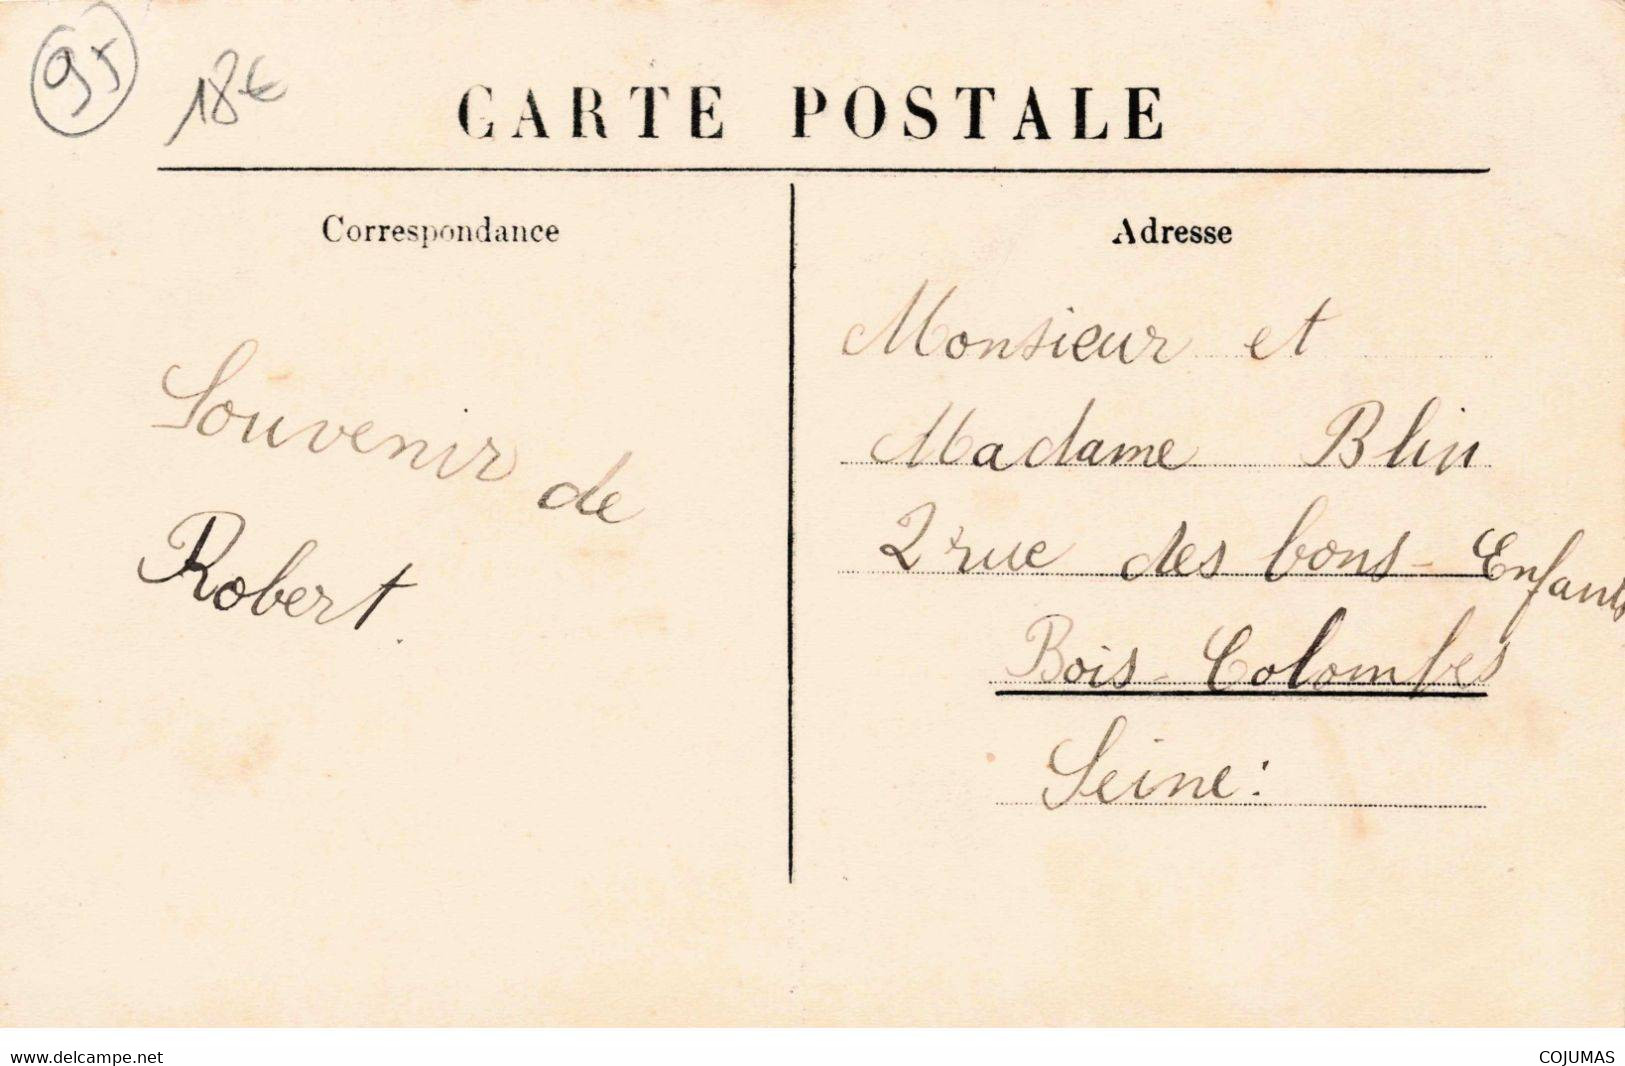 95
18€
CARTE POSTALE
Correspondance
Adresse
Souvenir de
Robert.
Monsieur et
Madame Blin
2 rue des bons-Enfants
Bois-Colombes
Seine:
www.delcampe.net
COJUMAS